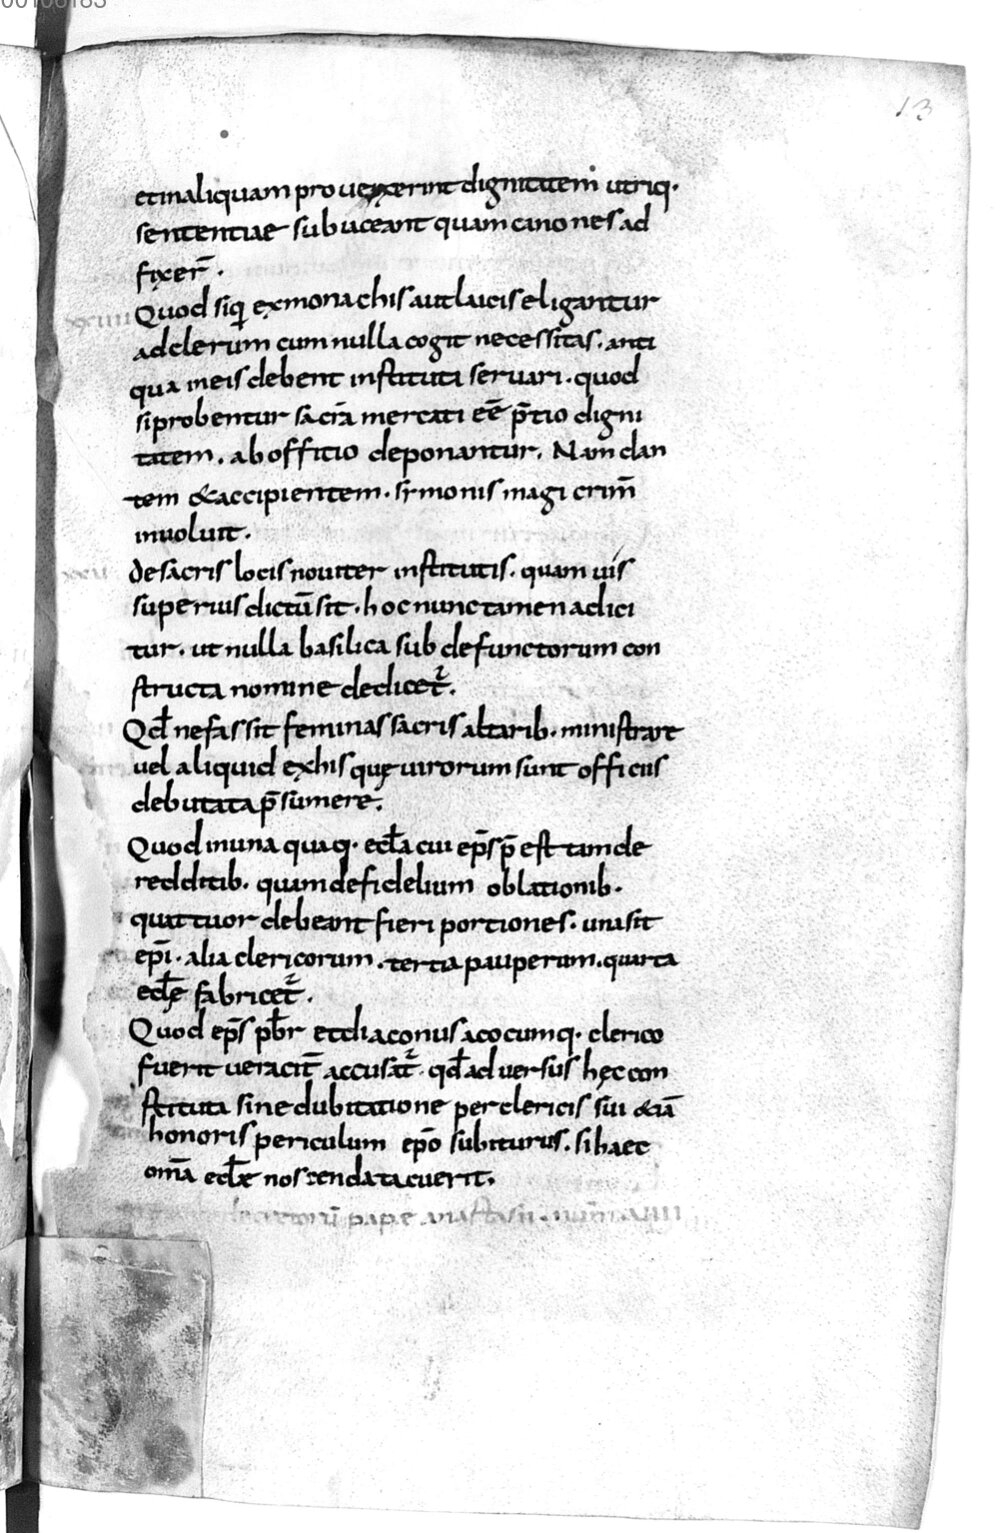 00106183
13
et in aliquam provexerint dignitatem utriq·
sententiae subiaceant quam canones ad
fixer̄.
xxiiii Quod siq̄ ex monachis aut laicis eligantur
ad clerum cum nulla cogit necessitas. anti
qua in eis debent instituta servari. quod
si probentur sacrā mercati eē p̄tio digni
tatem. ab officio deponantur. Nam dan
tem & accipientem. symonis magi crim̄
involvit.
xxv de sacris locis noviter institutis. quamvis
superius dictū sit. hoc nunc tamen adici
tur. ut nulla basilica sub defunctorum con
structa nomine dedicet̄.
Qd̄ nefas sit feminas sacris altarib· ministrare
vel aliquid ex his quę virorum sunt officiis
deputata p̄sumere.
Quod in una quaq· eccl̄a cui ep̄s p̄est tam de
redditib· quam de fidelium oblationib·
quattuor debeant fieri portiones. una sit
ep̄i. alia clericorum. tertia pauperum. quarta
eccl̄ę fabricet̄.
Quod ep̄s pb̄r et diaconus a cocumq· clerico
fuerit veracit̄ accusat̄. qd̄ adversus hęc con
stituta sine dubitatione per clericis sui &iā
honoris periculum ep̄o subiturus. si haec
om̄a eccl̄ę noscenda tacuerit.
decretorū papę anastasii. num̄